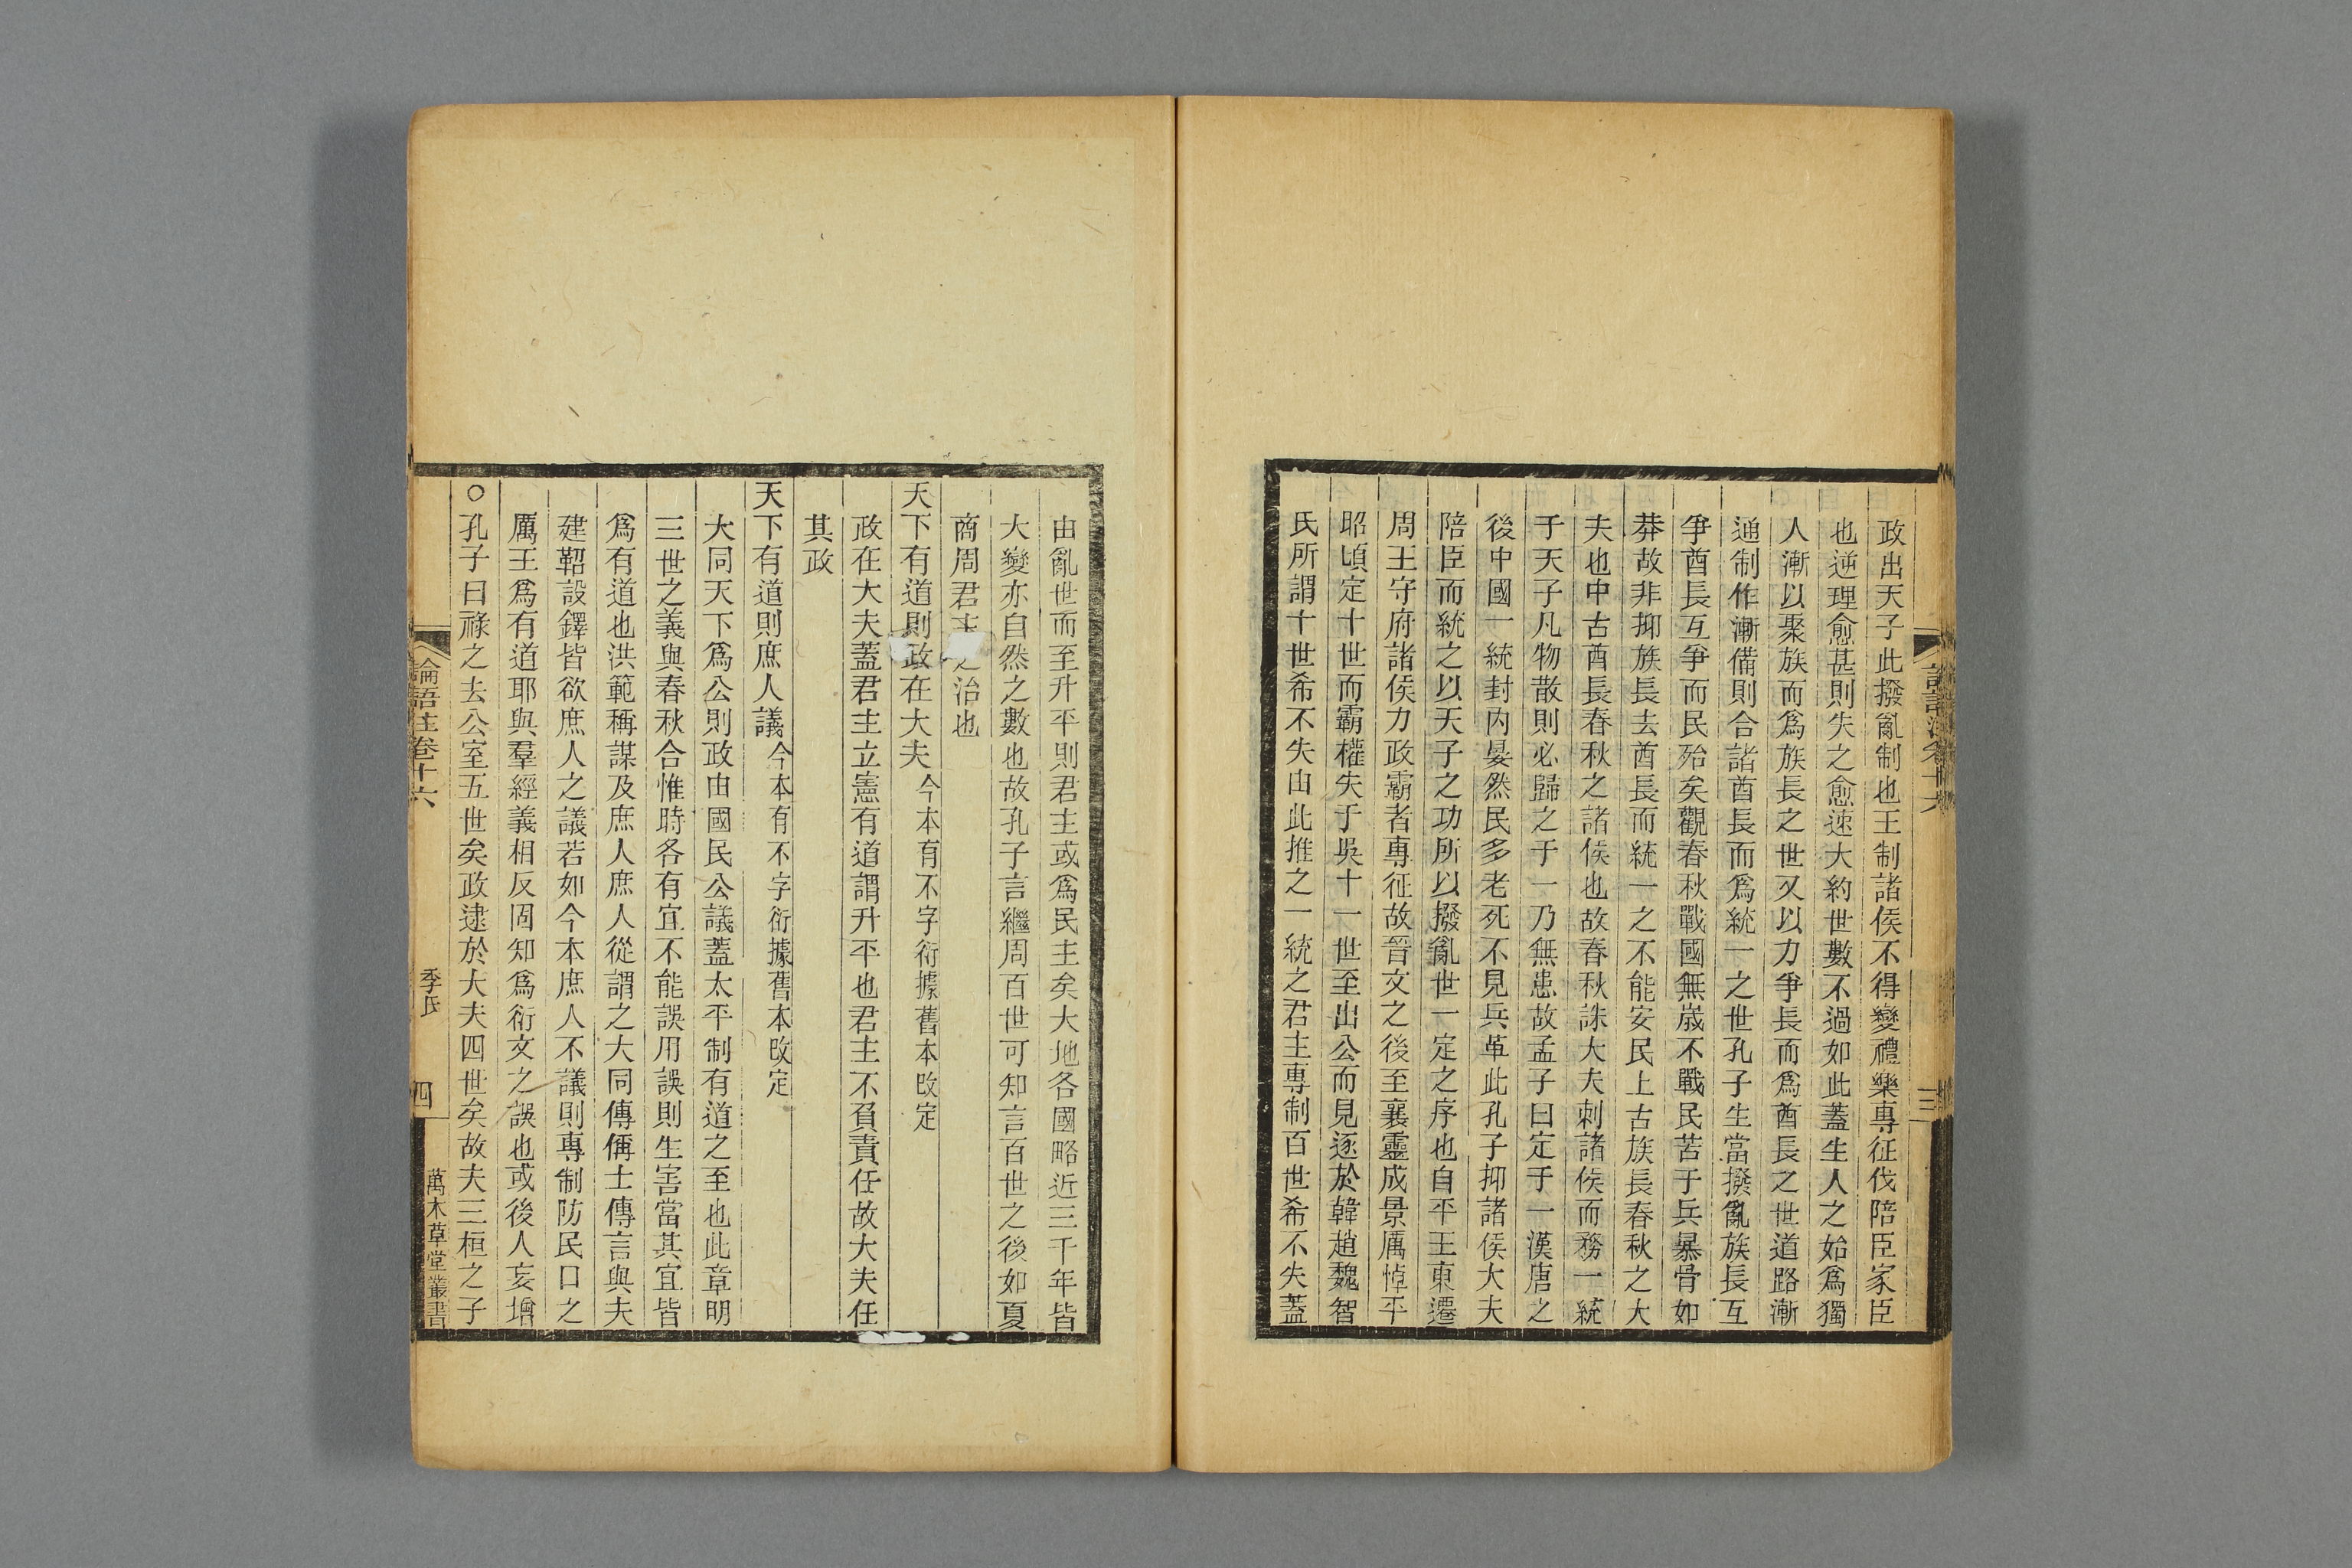 政出天子此撥亂制也王制諸侯不得變禮樂專征伐陪臣家臣
也逆理愈甚則失之愈速大約世數不過如此蓋生人之始爲獨
人漸以聚族而爲族長之世又以力爭長而爲酋長之世道路漸
通制作漸備則合諸酋長而爲統一之世孔子生當撥亂族長互
爭酋長互爭而民殆矣觀春秋戰國無歲不戰民苦于兵暴骨如
莽故非抑族長去酋長而統一之不能安民上古族長春秋之大
夫也中古酋長春秋之諸侯也故春秋誅大夫刺諸侯而務一統
于天子凡物散則必歸之于一乃無患故孟子曰定于一漢唐之
後中國一統封内晏然民多老死不見兵革此孔子抑諸侯大夫
陪臣而統之以天子之功所以撥亂世一定之序也自平王東遷
周王守府諸侯力政霸者專征故晉文之後至襄靈成景厲悼平
昭頃定十世而霸權失于吳十一世至出公而見逐於韓趙魏智
氏所謂十世希不失由此推之一統之君主專制百世希不失蓋
論語注卷十六
三
由亂世而至升平則君主或爲民主矣大地各國略近三千年皆
大變亦自然之數也故孔子言繼周百世可知言百世之後如夏
商周君主之治也
天下有道則政在大夫今本有不字衍據舊本改定
政在大夫蓋君主立憲有道謂升平也君主不負責任故大夫任
其政
天下有道則庶人議今本有不字衍據舊本改定
大同天下爲公則政由國民公議蓋太平制有道之至也此章明
三世之義與春秋合惟時各有宜不能誤用誤則生害當其宜皆
爲有道也洪範稱謀及庶人庶人從謂之大同傳偁士傳言與夫
建鞀設鐸皆欲庶人之議若如今本庶人不議則專制防民口之
厲王爲有道耶與羣經義相反固知爲衍文之誤也或後人妄增
○孔子曰祿之去公室五世矣政逮於大夫四世矣故夫三桓之子
論語注卷十六
季氏
四
萬木草堂叢書